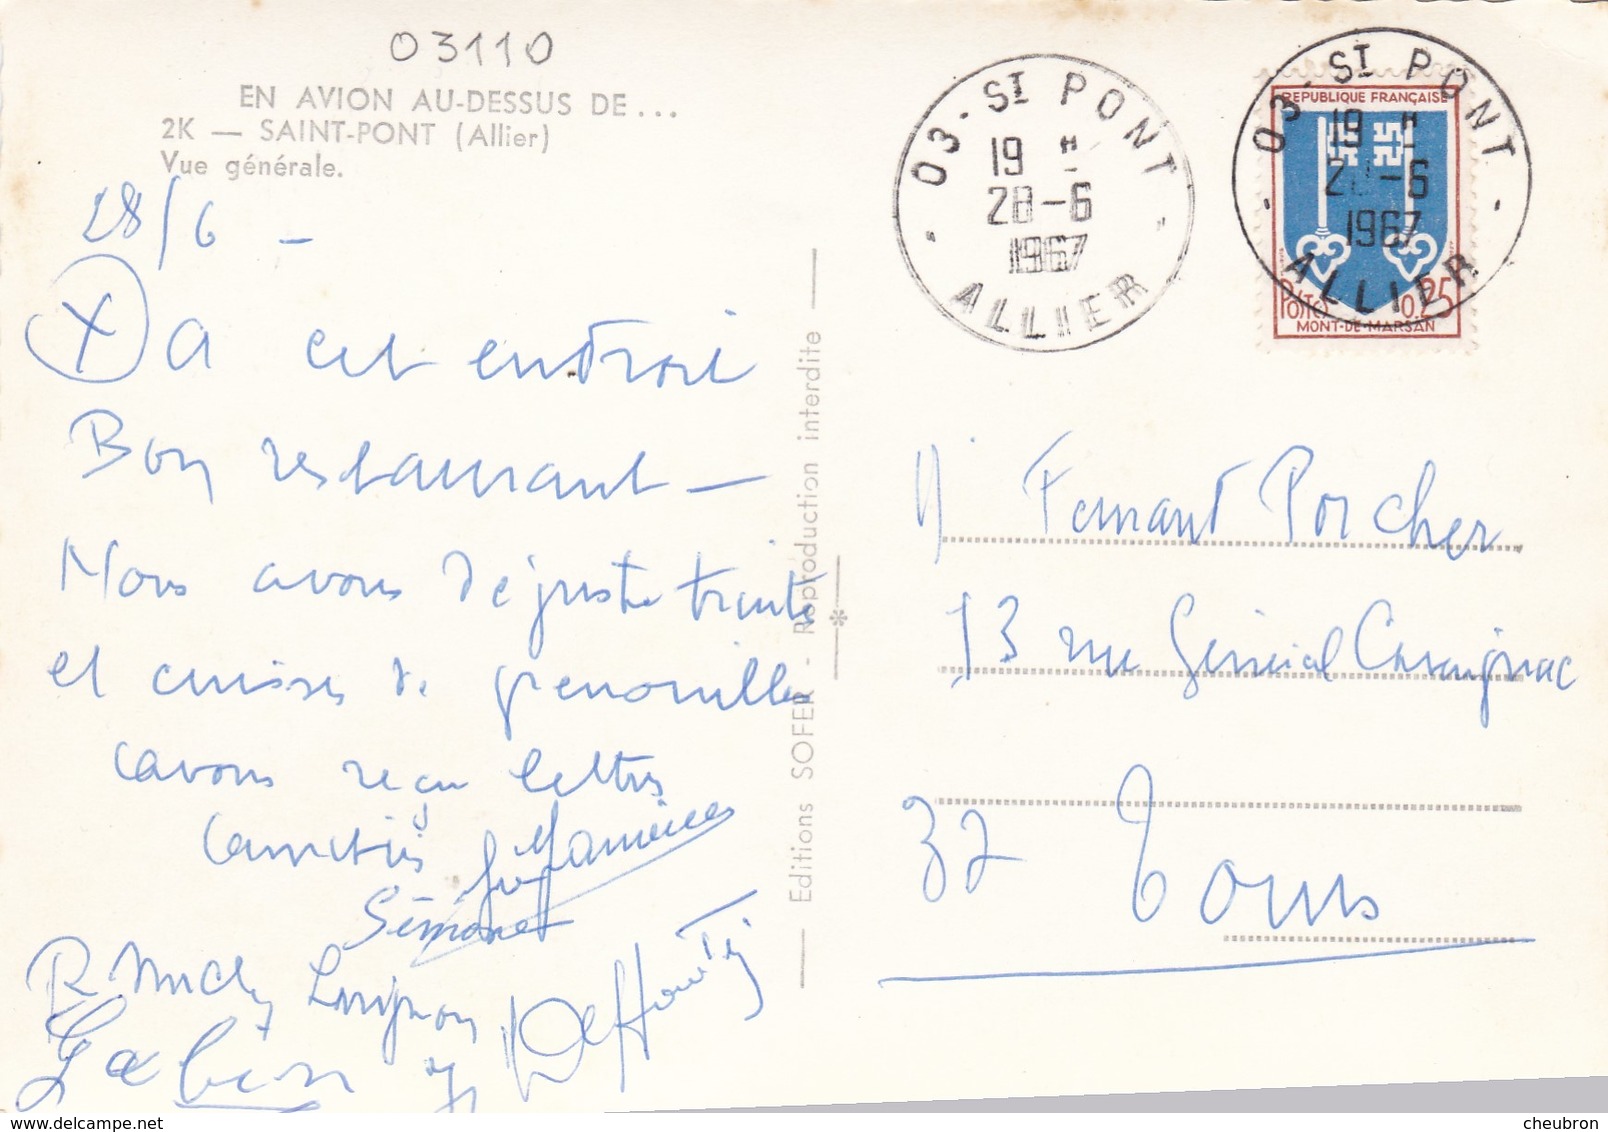 03110
EN AVION AU-DESSUS DE...
2K — SAINT-PONT (Allier)
Vue générale.
28/6 -
X a cet endroit
Bon restaurant —
Nous avons déguste truite
et cuisses de grenouilles
avons reçu lettres
amitiés
Simone
03 - ST PONT
19 H
28-6
1967
ALLIER
03 - ST PONT
19 H
28-6
1967
ALLIER
REPUBLIQUE FRANÇAISE
POSTES 0,25
MONT-DE-MARSAN
Editions SOFER - Reproduction interdite
M Fernand Porcher
13 rue Général Cavaignac
37 Tours
cheubron.com